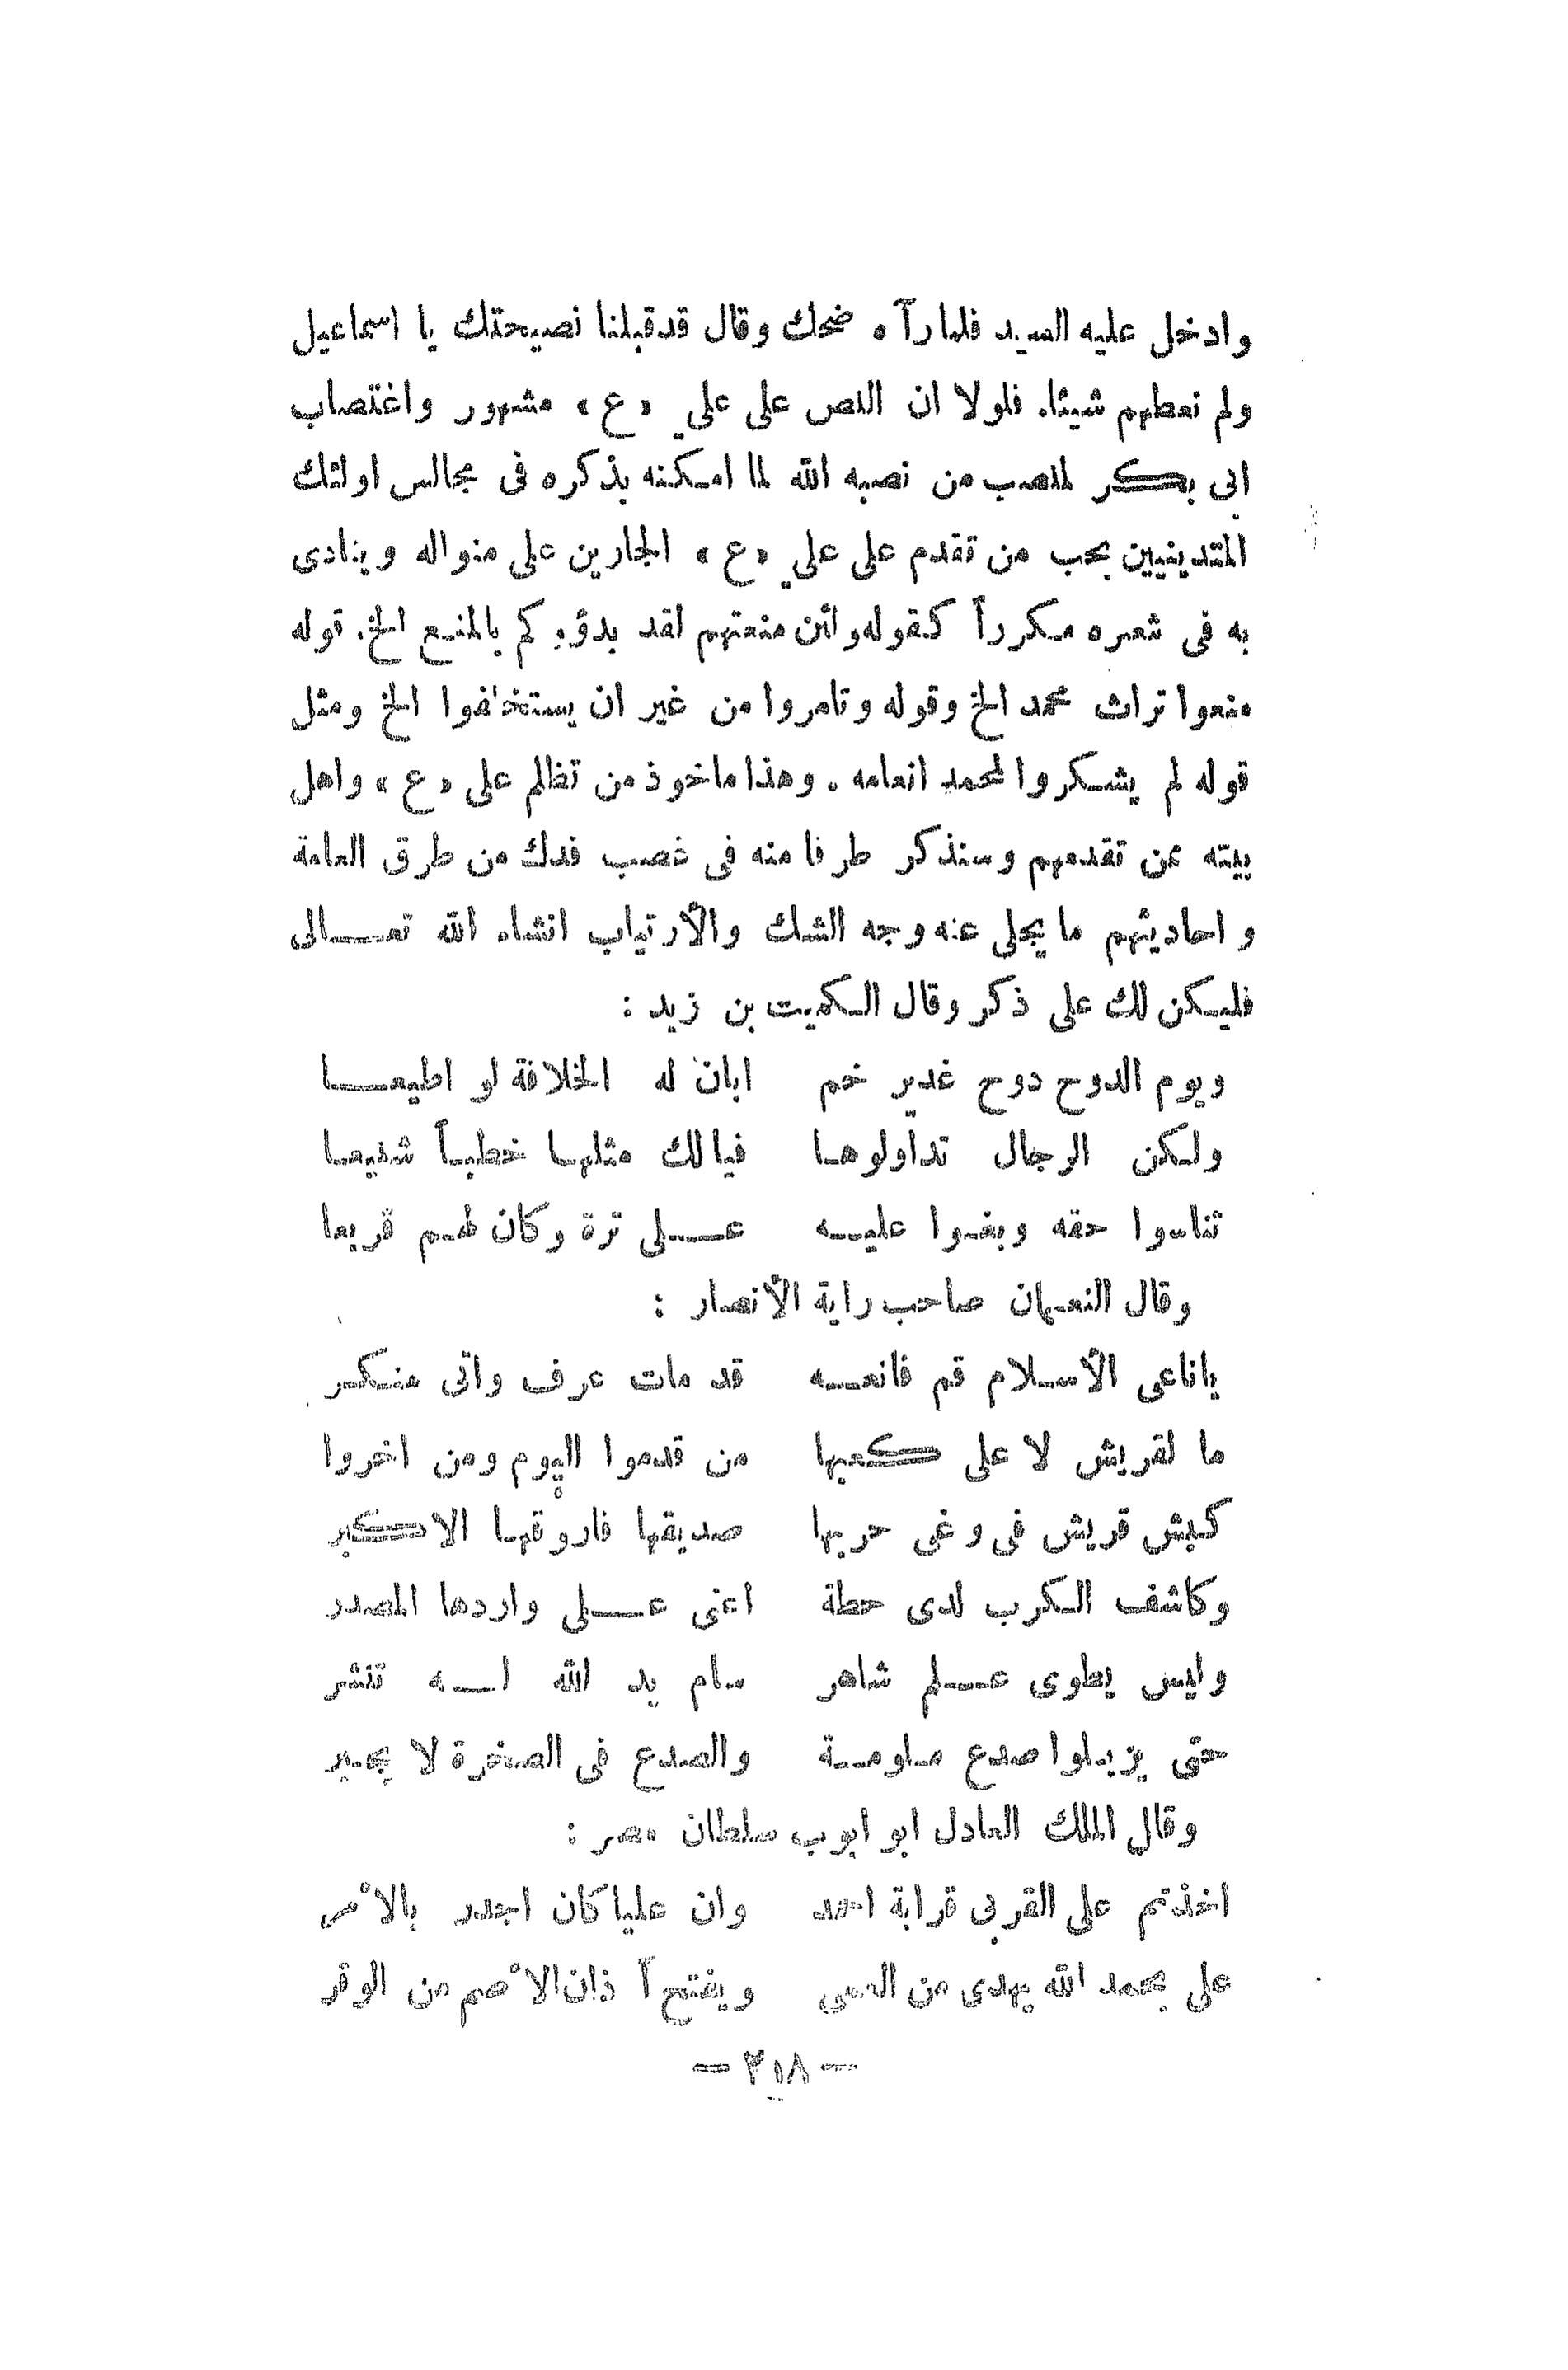 وادخل عليه السيد فلمارآه ضحك وقال قدقبلنا نصيحتك يا اسماعيل
ولم نعطهم شيئاً. فلولا ان النص على علي «ع» مشهور واغتصاب
ابى بكر لمنصب من نصبه الله لما امكنه بذكره فى مجالس اولئك
المتدينيين بحب من تقدم على علي «ع» الجارين على منواله وينادى
به فى شعره مكرراً كقوله ولئن منعتهم لقد بدؤكم بالمنع الخ. قوله
منعوا تراث محمد الخ وقوله وتامروا من غير ان يستخلفوا الخ ومثل
قوله لم يشكروا لمحمد انعامه . وهذا ماخوذ من تظلم على «ع» واهل
بيته عن تقدمهم وسنذكر طرفا منه فى غصب فدك من طرق العامة
واحاديثهم ما يجلى عنه وجه الشك والأرتياب انشاء الله تعالى
فليكن لك على ذكر وقال الكميت بن زيد :
ويوم الدوح دوح غدير خم ابان له الخلافة لو اطيعا
ولكن الرجال تداولوها فيالك مثلها خطباً شنيعا
تناسوا حقه وبغوا عليه على ترة وكان لهم قريعا
وقال النعمان صاحب راية الأنصار :
ياناعى الأسلام قم فانعه قد مات عرف واتى منكر
ما لقريش لا على كعبها من قدموا اليوم ومن اخروا
كبش قريش فى وغى حربها صديقها فاروقها الاكبر
وكاشف الكرب لدى خطة اعنى على واردها المصدر
وليس يطوى علم شاهر سام يد الله له تنشر
حتى يزيلوا صدع ملومة والصدع فى الصخرة لا يجبر
وقال الملك العادل ابو ايوب سلطان مصر :
اخذتم على القربى قرابة احمد وان عليا كان اجدر بالأمر
على بحمد الله يهدى من العمى ويفتح آذان الأصم من الوقر
— ٣١٨ —